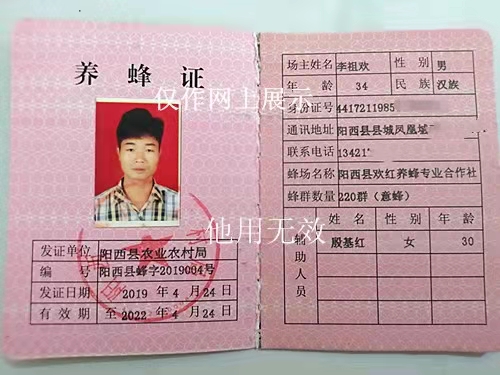 养蜂证
仅作网上展示
他用无效
发证单位 阳西县农业农村局
编号 阳西县蜂字2019004号
发证日期 2019 年 4 月 24 日
有效期 至 2022 年 4 月 24 日
场主姓名 李祖欢 性别 男
年龄 34 民族 汉族
身份证号 4417211985
通讯地址 阳西县县城凤凰
联系电话 13421
蜂场名称 阳西县欢红养蜂专业合作社
蜂群数量 220群（意蜂）
辅助人员
姓名 性别 年龄
殷基红 女 30